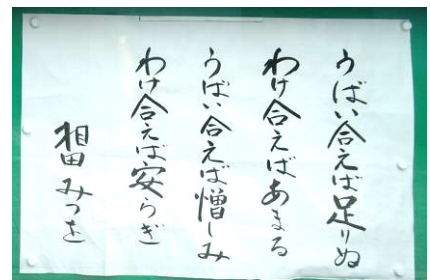 うばい合えば足りぬ
わけ合えばあまる
うばい合えば憎しみ
わけ合えば安らぎ
相田みつを